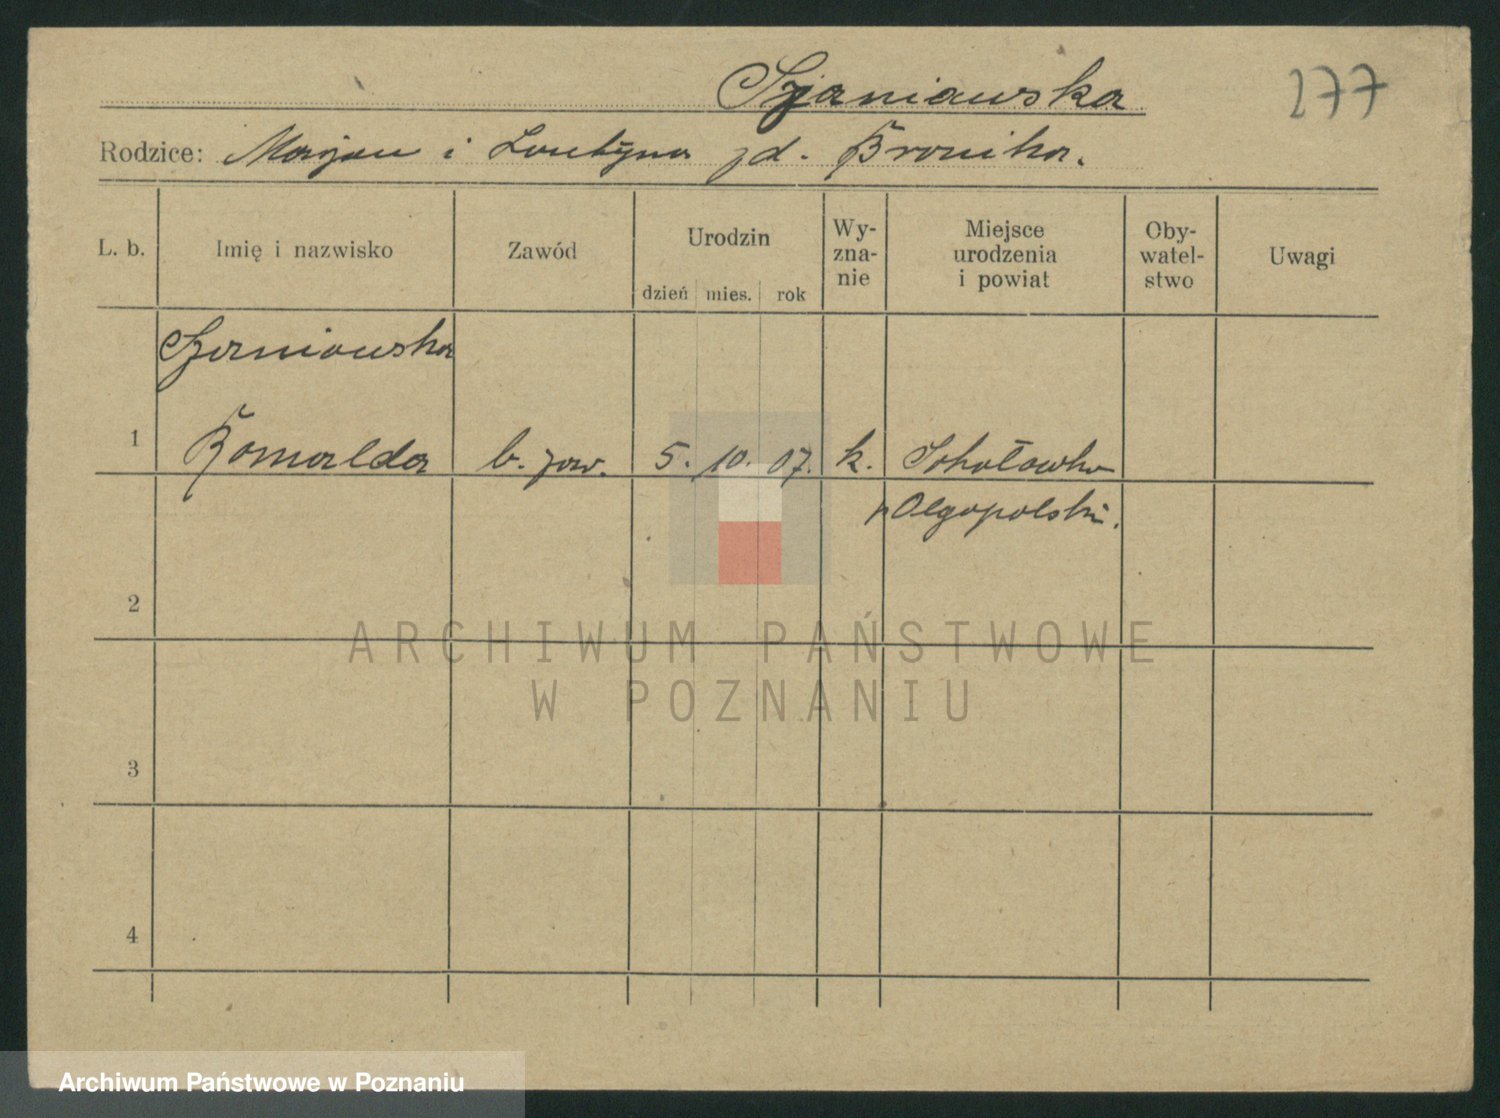 Szaniawska
277
Rodzice: Maryan i Leontyna zd. Bronika.
L. b. Imię i nazwisko Zawód Urodzin dzień mies. rok Wy-zna-nie Miejsce urodzenia i powiat Oby-watel-stwo Uwagi
Szaniawska
1 Romualda b. zaw. 5. 10. 07. k. Sokołówka
p Olgopolski.
2
ARCHIWUM PAŃSTWOWE
W POZNANIU
3
4
Archiwum Państwowe w Poznaniu